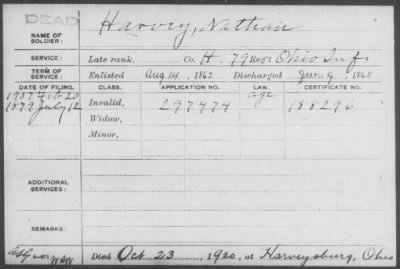 DEAD
Harvey, Nathan
NAME OF
SOLDIER:
SERVICE: Late rank, Co. H. 79 Reg't Ohio Inf.
TERM OF
SERVICE: Enlisted Aug 14, 1862 Discharged June 9, 1865
DATE OF FILING. CLASS. APPLICATION NO. LAW. CERTIFICATE NO.
1907 Feb 20 age
1879 July 12 Invalid, 297474 188296
Widow,
Minor,
ADDITIONAL
SERVICES:
Died Oct 23, 1920, at Harveysburg, Ohio